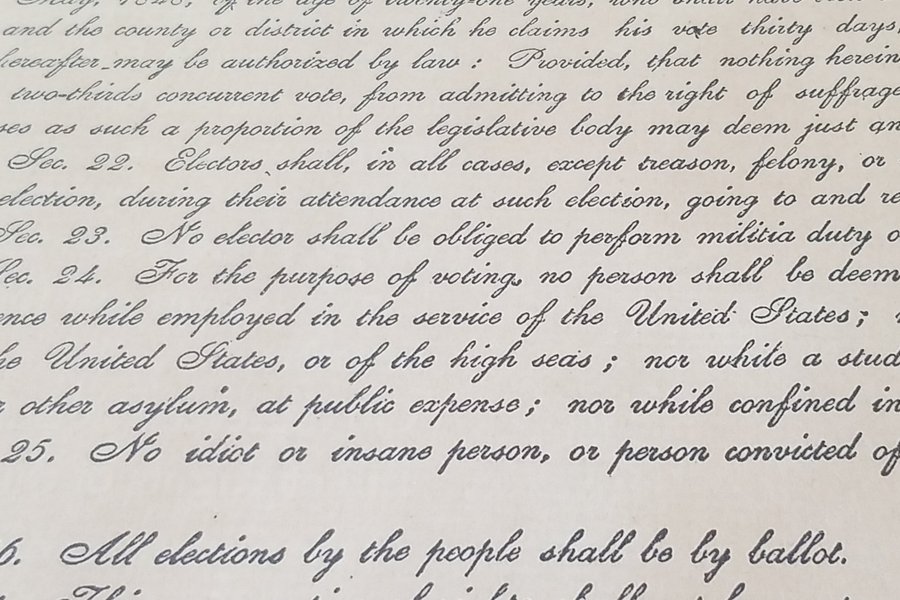 May, 1848, of the age of twenty-one years, who shall have
and the county or district in which he claims his vote thirty days,
hereafter may be authorized by law : Provided, that nothing herein
two-thirds concurrent vote, from admitting to the right of suffrage
ses as such a proportion of the legislative body may deem just an
Sec. 22. Electors shall, in all cases, except treason, felony, or
election, during their attendance at such election, going to and re
Sec. 23. No elector shall be obliged to perform militia duty o
Sec. 24. For the purpose of voting, no person shall be deem
ence while employed in the service of the United States ;
he United States, or of the high seas ; nor while a stud
r other asylum, at public expense ; nor while confined in
25. No idiot or insane person, or person convicted of
6. All elections by the people shall be by ballot.